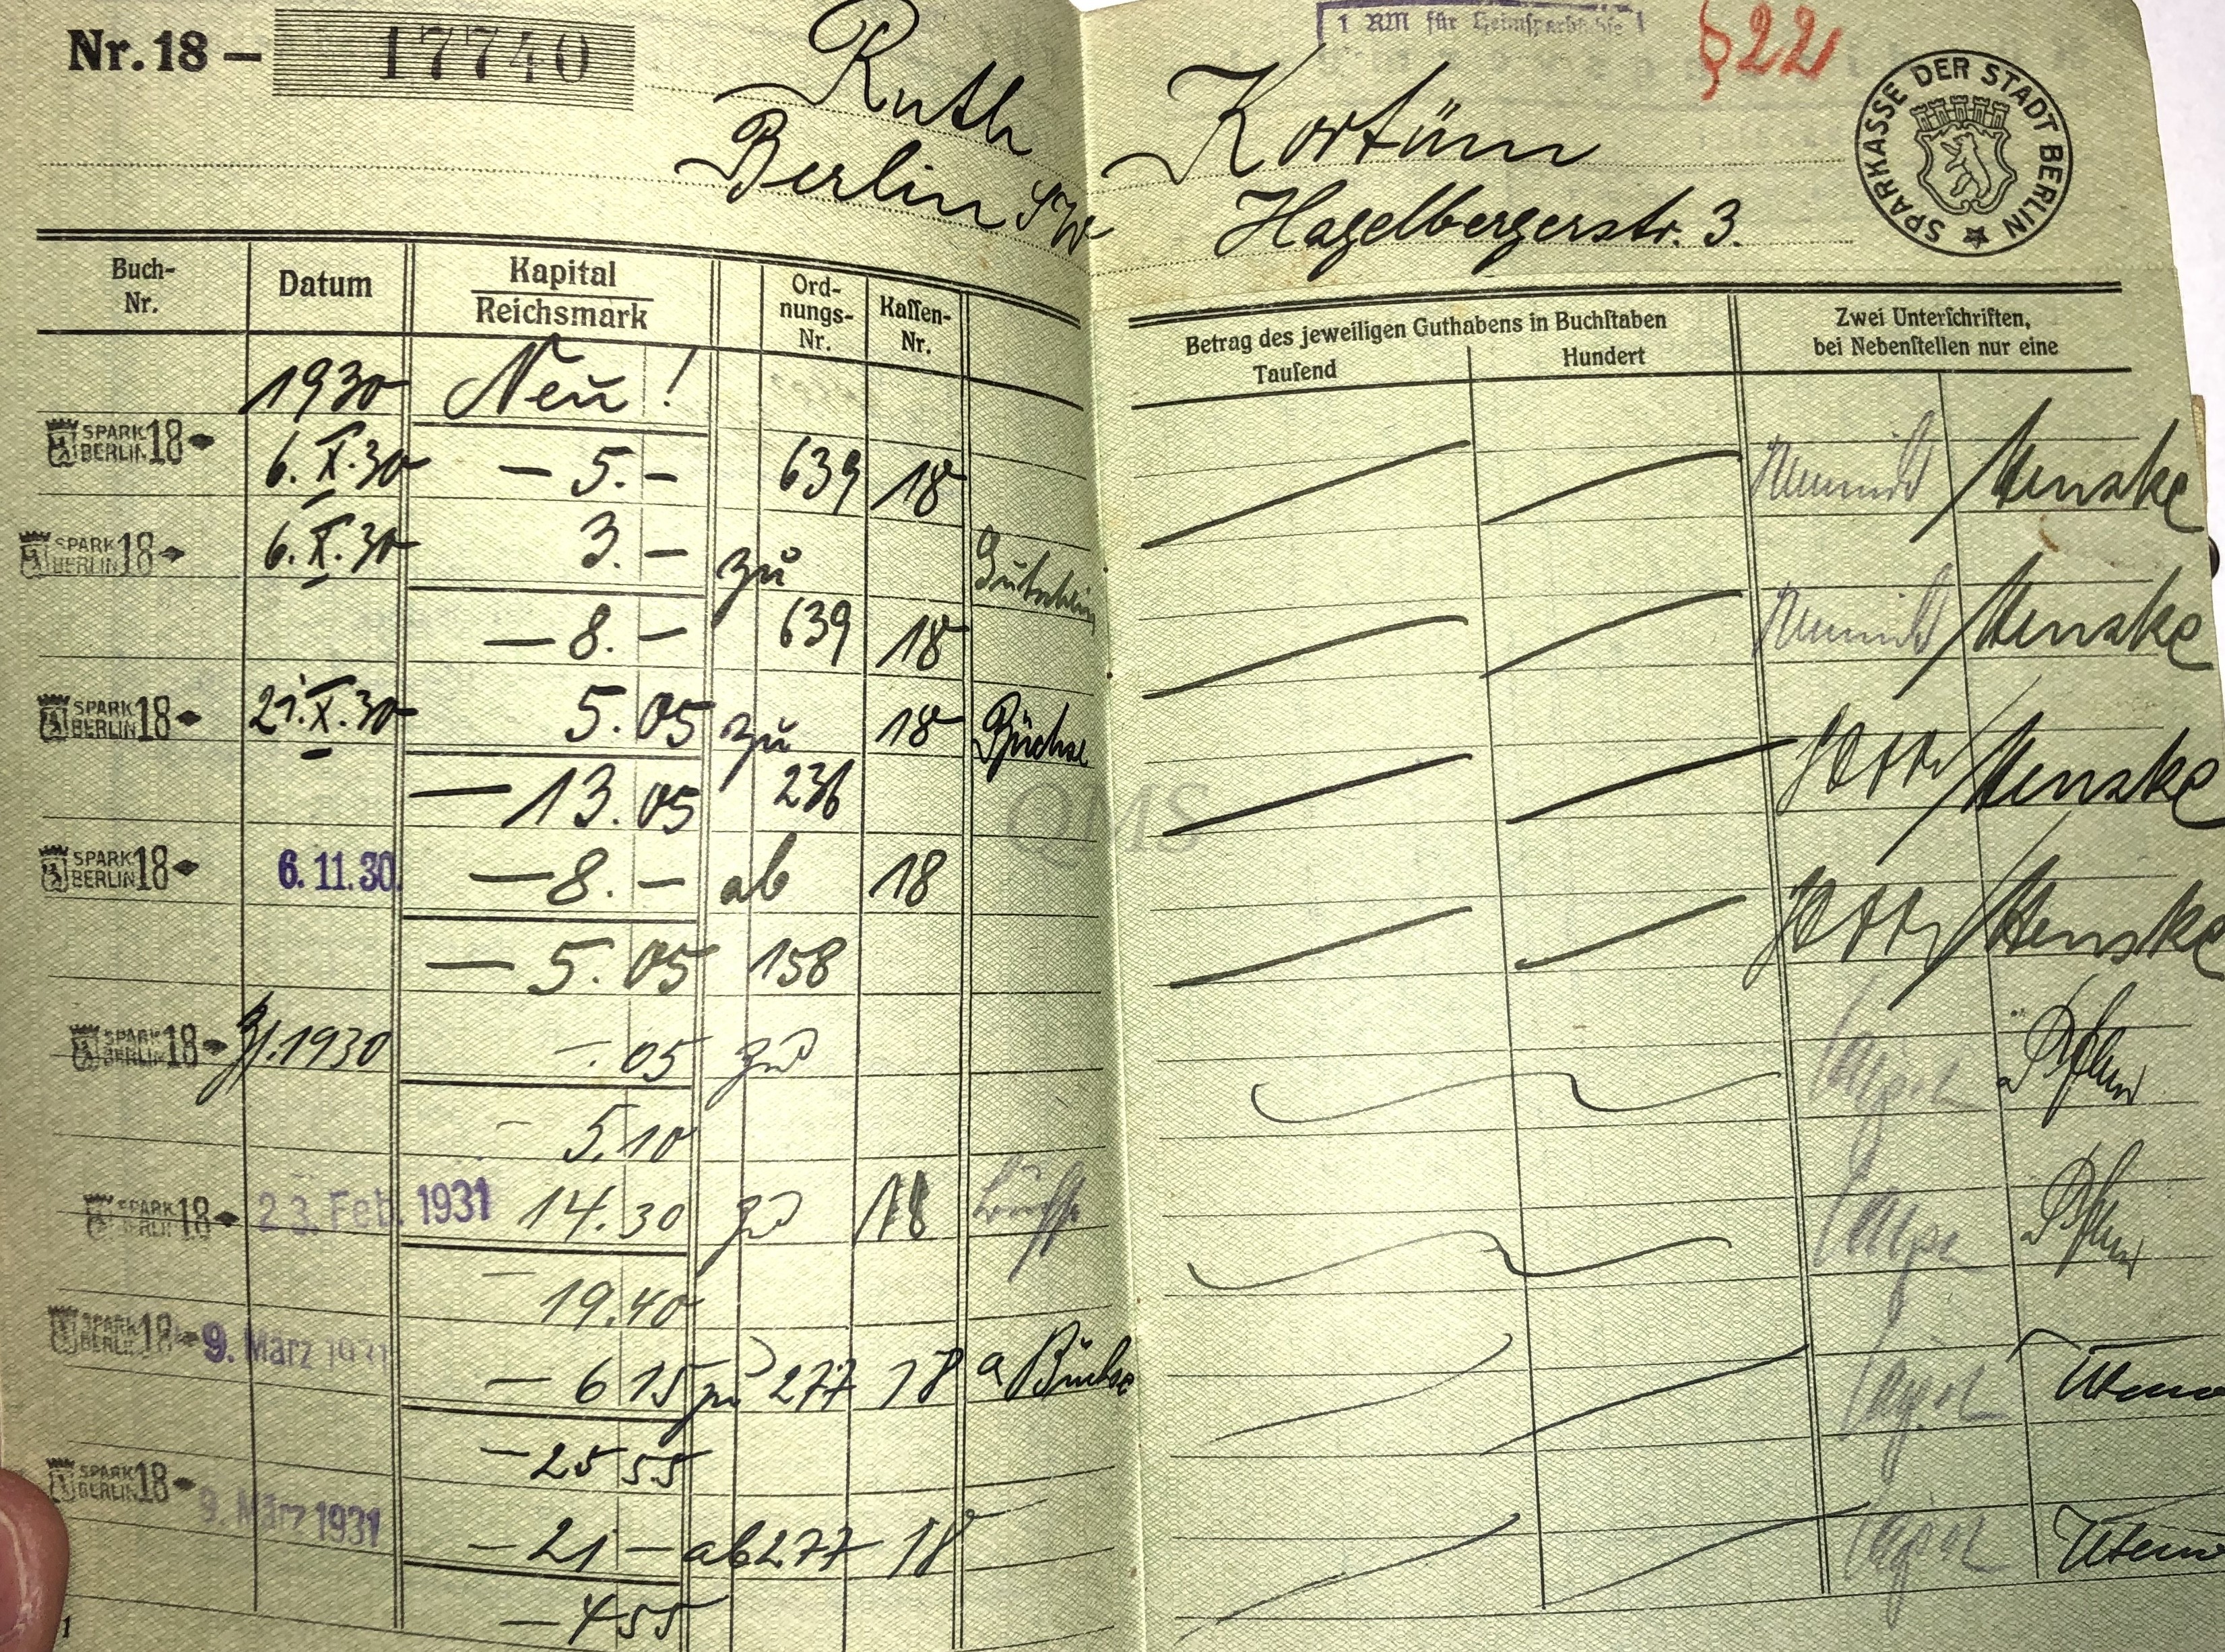 1 RM für Heimsparbüchse
§ 22
Nr. 18 — 17740
Ruth Kortüm
Berlin SW Hagelbergerstr. 3.
SPARKASSE DER STADT BERLIN
Buch-Nr. Datum Kapital Reichsmark Ordnungs-Nr. Kassen-Nr. Betrag des jeweiligen Guthabens in Buchstaben Tausend Hundert Zwei Unterschriften, bei Nebenstellen nur eine
1930 Neu!
SPARK BERLIN 18 6. X. 30 — 5. — 639 18 Henske
SPARK BERLIN 18 6. X. 30 3. — zu Gutschein
— 8. — 639 18 Henske
SPARK BERLIN 18 21. X. 30 5.05 zu 18 Büchse
— 13.05 236 Henske
SPARK BERLIN 18 6. 11. 30. — 8. — ab 18
— 5.05 158 Henske
SPARK BERLIN 18 1930 — .05 zu
— 5.10
SPARK BERLIN 18 23. Feb. 1931 14.30 zu 18
— 19.40
SPARK BERLIN 18 9. März 1931 — 6 15 zu 277 18 a Büchse
— 25 55
SPARK BERLIN 18 9. März 1931 — 21 — ab 277 18
— 4 55
QMS
1